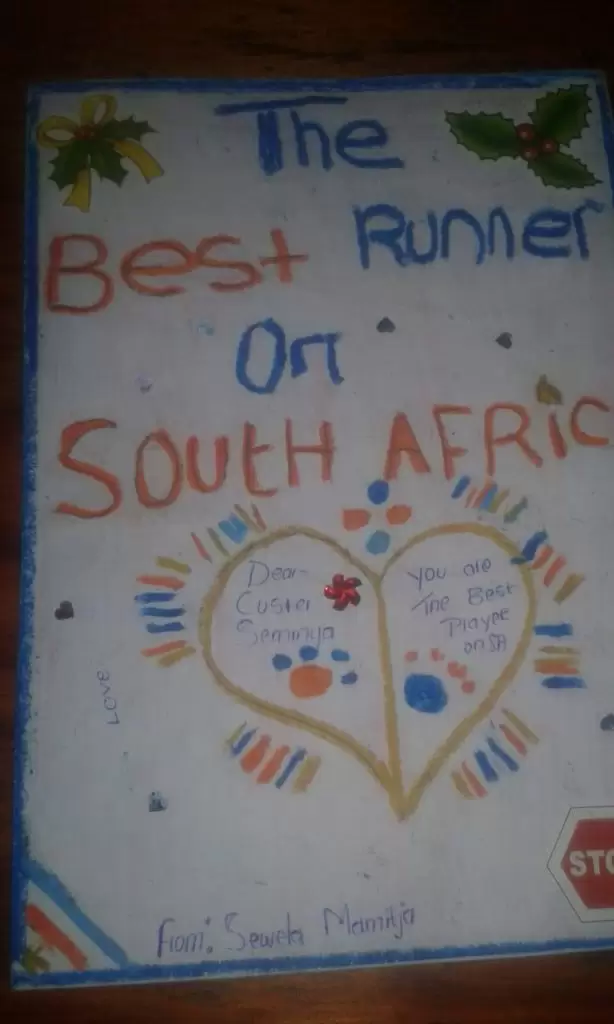 The
Best Runner
On
SOUTH AFRIC
Dear
Custer
Seminya
You are
The Best
Player
on SA
LOVE
STO
From: Sewela Mamitja